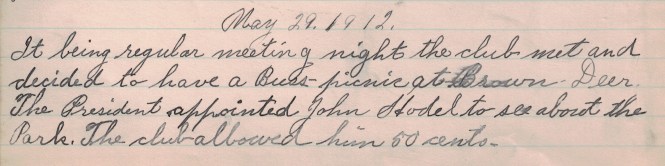 May 29. 1912.
It being regular meeting night the club met and
decided to have a Buss-picnic at Brown-Deer.
The President appointed John Hodel to see about the
Park. The club allowed him 50 cents-